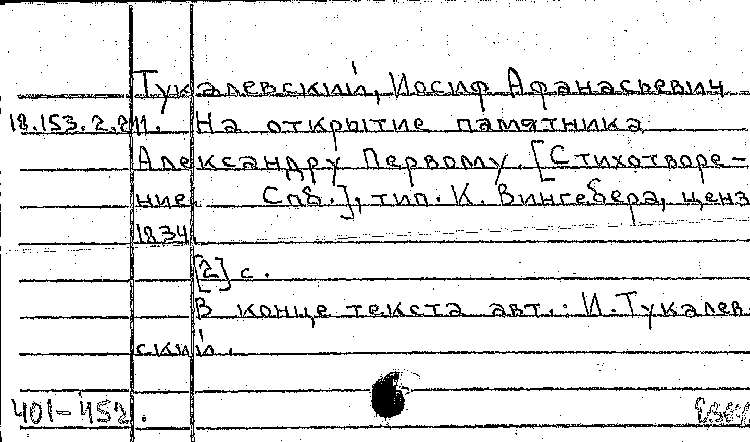 Тукалевский, Иосиф Афанасьевич
18.153.2.211. На открытие памятника
Александру Первому. [Стихотворе-
ние. Спб.], тип. К. Вингебера, ценз
1834.
[2] с.
В конце текста авт.: И. Тукалев
ский.
401-452.